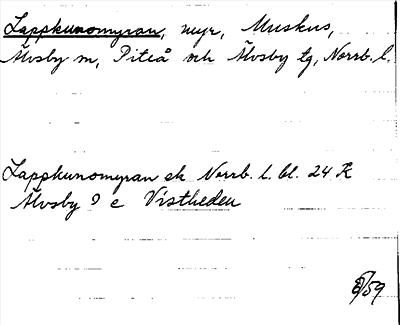 Lappkunomyran, myr, Muskus,
Älvsby sn, Piteå och Älvsby tg, Norrb. l.
Lappkunomyran ek Norrb. l. bl. 24 K
Älvsby 9 c Vistheden
/59